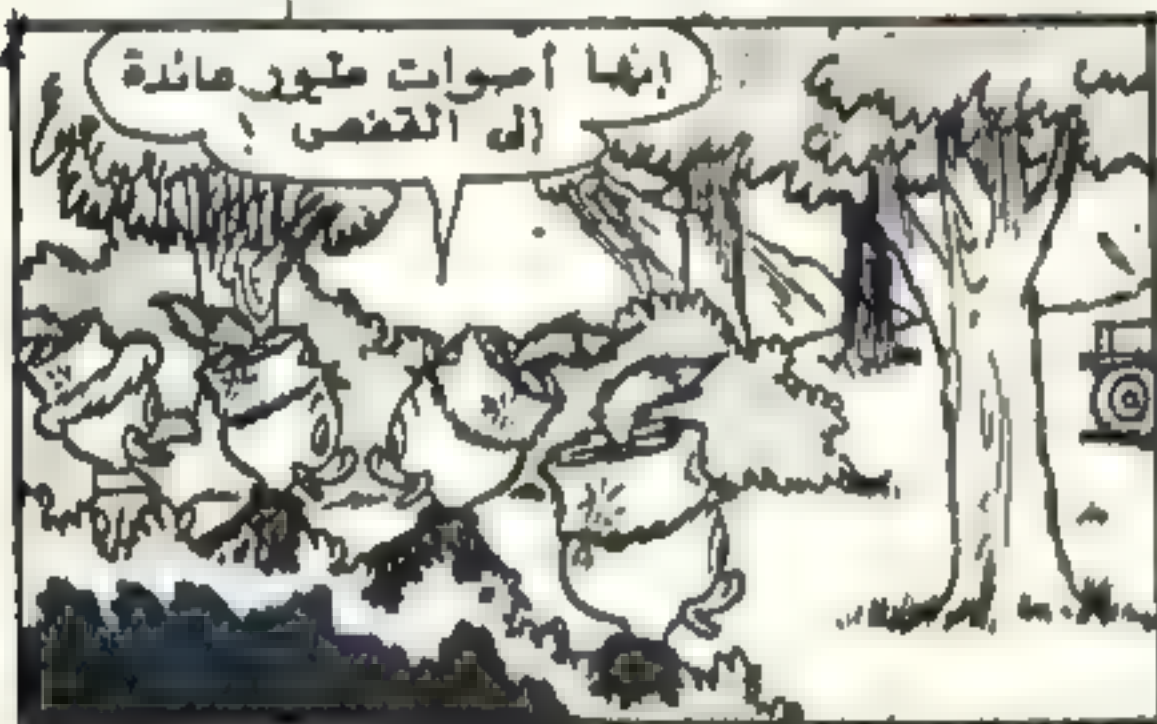 إنها أصوات طيور عائدة
إلى القفص !